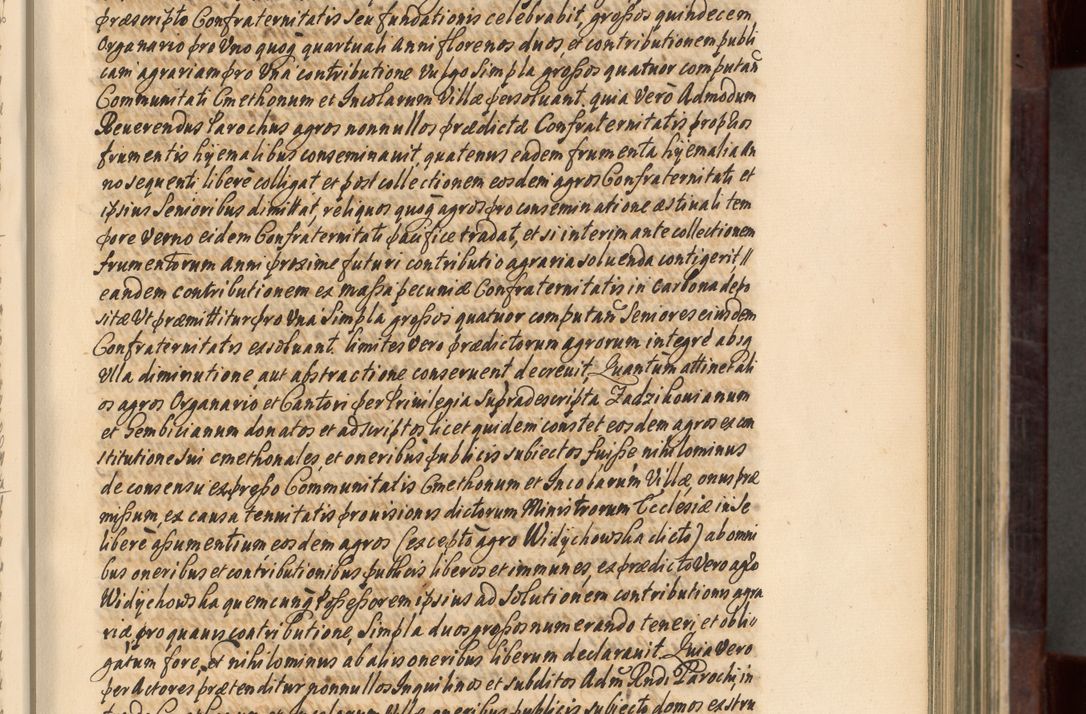 præscripto Confraternitatis seu fundationis celebrabit, grossos quindecem
Organario pro Uno quoq̃ quartuali Anni florenos duos, et contributionem publi
cam agrariam pro Una contributione Vulgo Simpla grossos quatuor computañ
Communitati Cmethonum et Incolarum Villæ persoluant. quia Vero Admodum
Reuerendus Parochus agros nonnullos prædictæ Confraternitatis proprios
frumentis hyemalibus conseminauit, quatenus eadem frumenta hyemalia An
no sequenti liberè colligat et post collectionem eosdem agros Confraternitati et
ipsius Senioribus dimittat, reliquos quoq̃ agros pro conseminatione æstiuali tem
pore Verno eidem Confraternitati pacifice tradat, et si interim ante collectionem
frumentorum Anni proxime futuri contributio agraria soluenda contigerit //
eandem contributionem ex massa pecuniæ Confraternitatis in carbona depo
sitæ Ut præmittitur pro Una Simpla grossos quatuor computañ Seniores eiusdem
Confraternitatis exsoluant. limites Vero prædictorum agrorum integrè absq̃
Ulla diminutione aut abstractione conseruent decreuit, Quantum attinet ali
os agros Organario et Cantori per Priuilegia Supradescripta Zadzikouianum
et Gembicianum donatos et adscriptos licet quidem constet eosdem agros ex con
stitutione sui cmethonales, et oneribus publicis subiectos fuisse nihilominus
de consensu expresso Communitatis Cmethonum et Incolarum Villæ, onus præ
missum, ex causa tenuitatis prouisionis dictorum Ministrorum Ecclesiæ in se
liberè assumentium eosdem agros (excepto agro Widychowska dicto) ab omni
bus oneribus et contributionibus publicis liberos et immunes, ex prædicto Vero agro
Widychowska quemcunq̃ Possessorem ipsius ad Solutionem contributionis agra
riæ pro quauis contributione Simpla duos grossos numerando teneri, et obli-
gatum fore, et nihilominus ab alijs oneribus liberum declarauit. Quia Vero
per Actores prætenditur nonnullos Inquilinos et subditos Adm̃ Rndi Parochi in